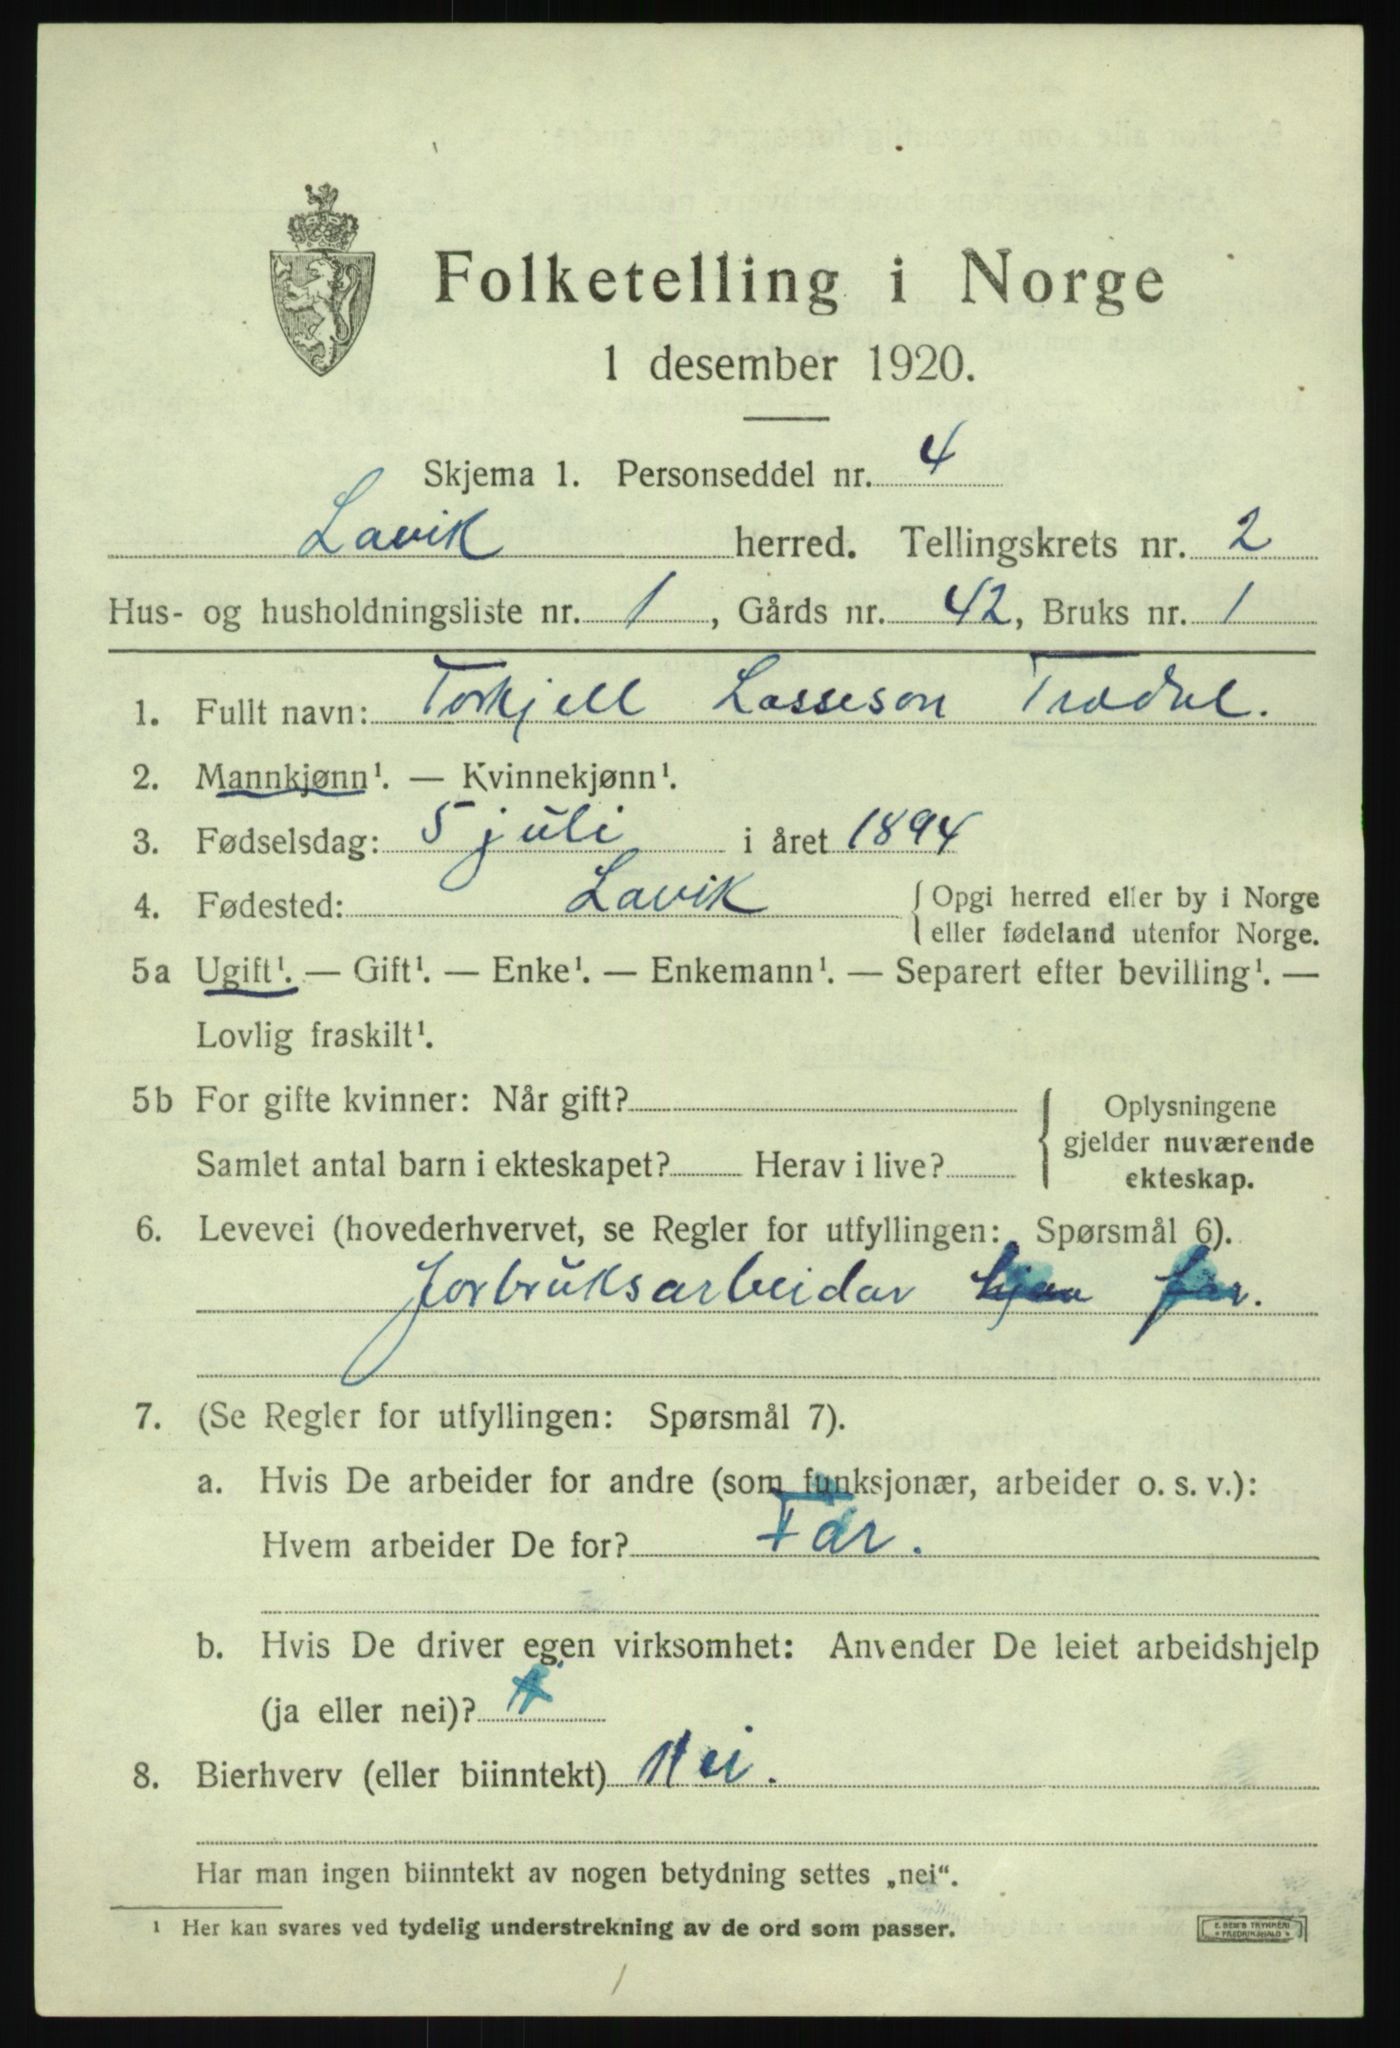 Folketelling i Norge
1 desember 1920.
Skjema 1. Personseddel nr. 4
Lavik herred. Tellingskrets nr. 2
Hus- og husholdningsliste nr. 1, Gårds nr. 42, Bruks nr. 1
1. Fullt navn: Torkjell Lasseson Tradal.
2. Mannkjønn¹. — Kvinnekjønn¹.
3. Fødselsdag: 5 juli i året 1894
4. Fødested: Lavik { Opgi herred eller by i Norge
eller fødeland utenfor Norge.
5a Ugift¹. — Gift¹. — Enke¹. — Enkemann¹. — Separert efter bevilling¹. —
Lovlig fraskilt¹.
5b For gifte kvinner: Når gift? { Oplysningene
gjelder nuværende
Samlet antal barn i ekteskapet? Herav i live?
ekteskap.
6. Levevei (hovederhvervet, se Regler for utfyllingen: Spørsmål 6).
Jorbruksarbeidar hjaa far.
7. (Se Regler for utfyllingen: Spørsmål 7).
a. Hvis De arbeider for andre (som funksjonær, arbeider o. s. v.):
Hvem arbeider De for? Far.
b. Hvis De driver egen virksomhet: Anvender De leiet arbeidshjelp
(ja eller nei)?
8. Bierhverv (eller biinntekt) Nei.
Har man ingen biinntekt av nogen betydning settes „nei“.
¹ Her kan svares ved tydelig understrekning av de ord som passer.
E. SEM'S TRYKKERI
FREDRIKSHALD